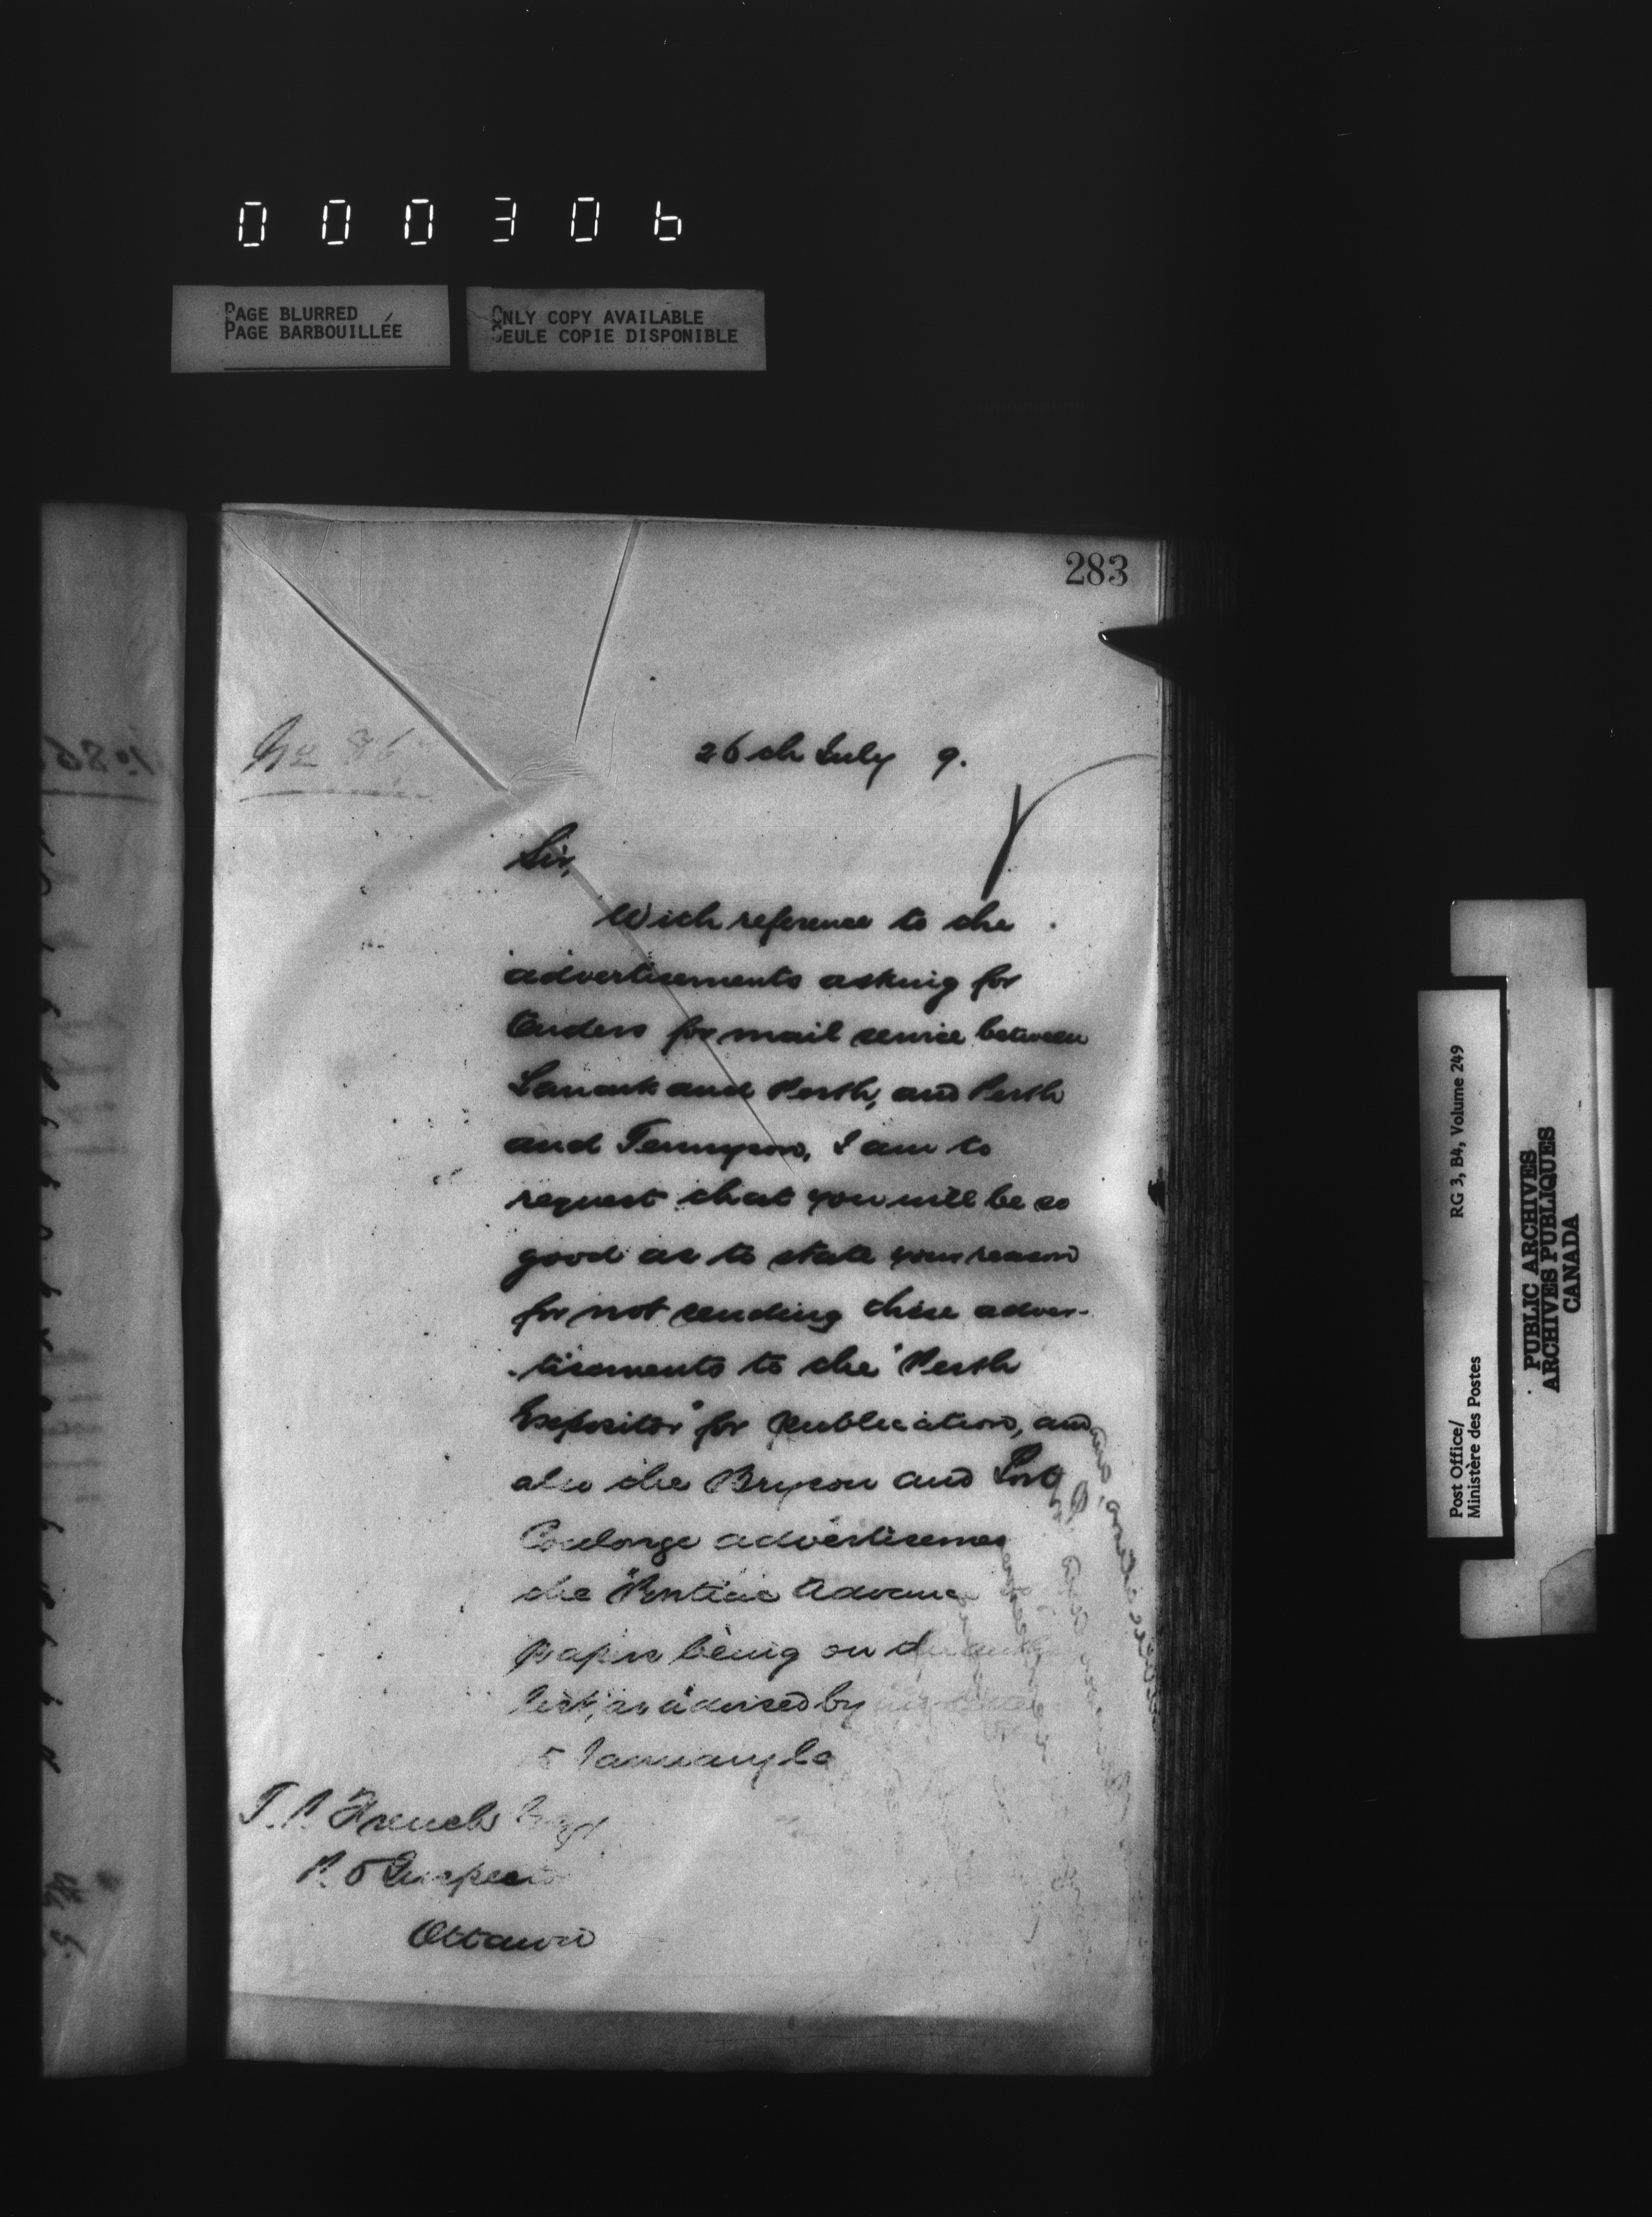 000306
PAGE BLURRED
PAGE BARBOUILLÉE
ONLY COPY AVAILABLE
SEULE COPIE DISPONIBLE
283
No 86
26th July 9.
Sir,
With reference to the
advertisements asking for
tenders for mail service between
Lanark and Perth, and Perth
and Tennyson, I am to
request that you will be so
good as to state your reason
for not sending these adver-
-tisements to the "Perth
Expositor" for publication, and
also the Bryson and Fort
Coulonge advertisemen
the "Pontiac Advance
papers being on
list, as advised by
5 January
T. P. French Esqr
P. O Inspector
Ottawa
Post Office/
Ministère des Postes
RG 3, B4, Volume 249
PUBLIC ARCHIVES
ARCHIVES PUBLIQUES
CANADA